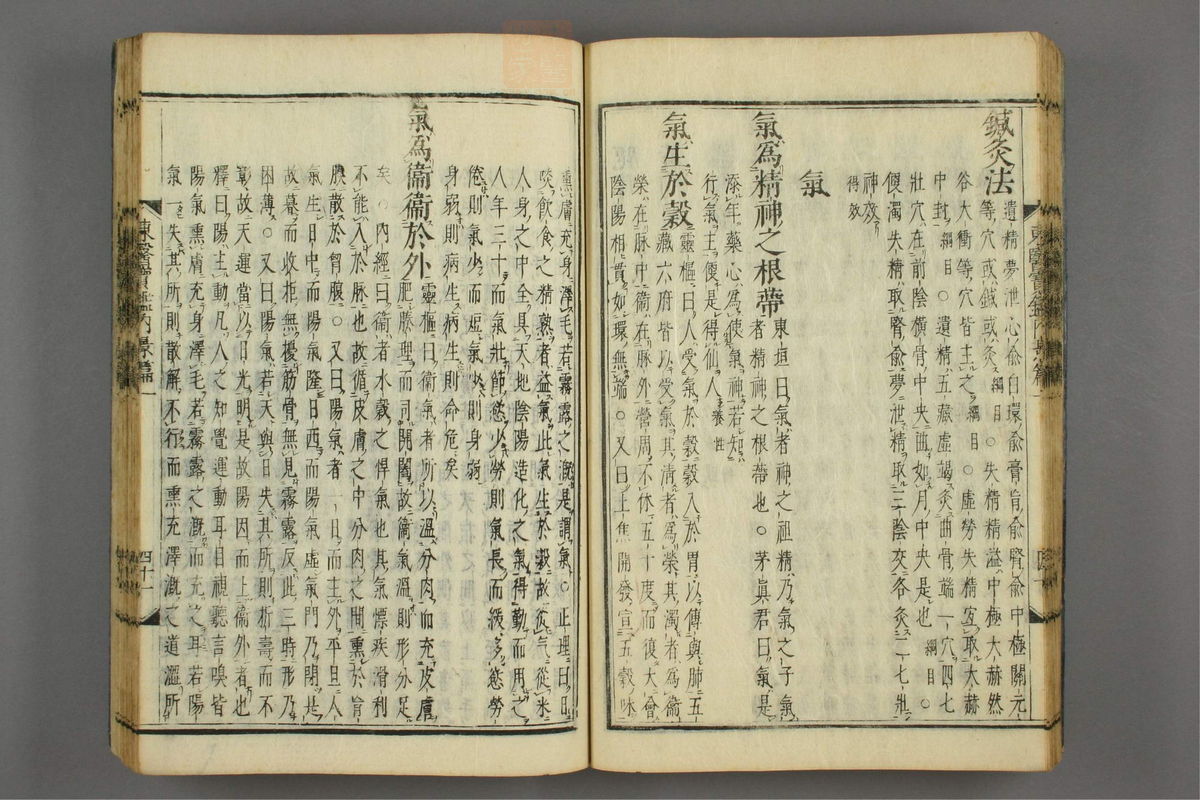 鍼灸法
遺精夢泄心俞白環俞膏肓俞腎俞中極關元
等穴或鍼或灸綱目○失精精溢中極大赫然
谷大衝等穴皆主之綱目○虛勞失精宜取大赫
中封綱目○遺精五藏虛竭灸曲骨端一穴四七
壯穴在前陰橫骨中央曲如月中央是也綱目○
便濁失精取腎俞夢泄精取三陰交各灸二七壯
神效得效
氣
氣爲精神之根蔕
東垣曰氣者神之祖精乃氣之子氣
者精神之根蔕也○茅眞君曰氣是
添年藥心爲使氣神若知
行氣主便是得仙人養性
氣生於穀
靈樞曰人受氣於穀穀入於胃以傳與肺五
藏六府皆以受氣其淸者爲榮其濁者爲衞
榮在脉中衞在脉外營周不休五十度而復大會
陰陽相貫如環無端○又曰上焦開發宣五穀味
東醫寶鑑內景篇一
熏膚充身澤毛若霧露之漑是謂氣○正理曰日
啖飮食之精熟者益氣此氣生於穀故從气從米
人身之中全具天地陰陽造化之氣得勤而用之
人年二十而氣壯節慾少勞則氣長而緩多慾勞
倦則氣少而短氣少則身弱
身弱則病生病生則命危矣
氣爲衞衞於外
靈樞曰衞氣者所以溫分肉而充皮膚
肥腠理而司開闔故衞氣溫則形分足
矣○內經曰衞者水穀之悍氣也其氣慓疾滑利
不能入於脉也故循皮膚之中分肉之間熏於肓
膜散於胷腹○又曰陽氣者一日而主外平旦人
氣生日中而陽氣隆日西而陽氣虛氣門乃閉是
故暮而收拒無擾筋骨無見霧露反此三時形乃
困薄○又曰陽氣若天與日失其所則折壽而不
彰故天運當以日光明是故陽因而上衞外者也
釋曰陽主動凡人之知覺運動耳目視聽言嗅皆
陽氣熏膚充身澤毛若霧露之漑而充之耳若陽
氣一失其所則散解不行而熏充澤漑之道濇所
東醫寶鑑內景篇一
四十一